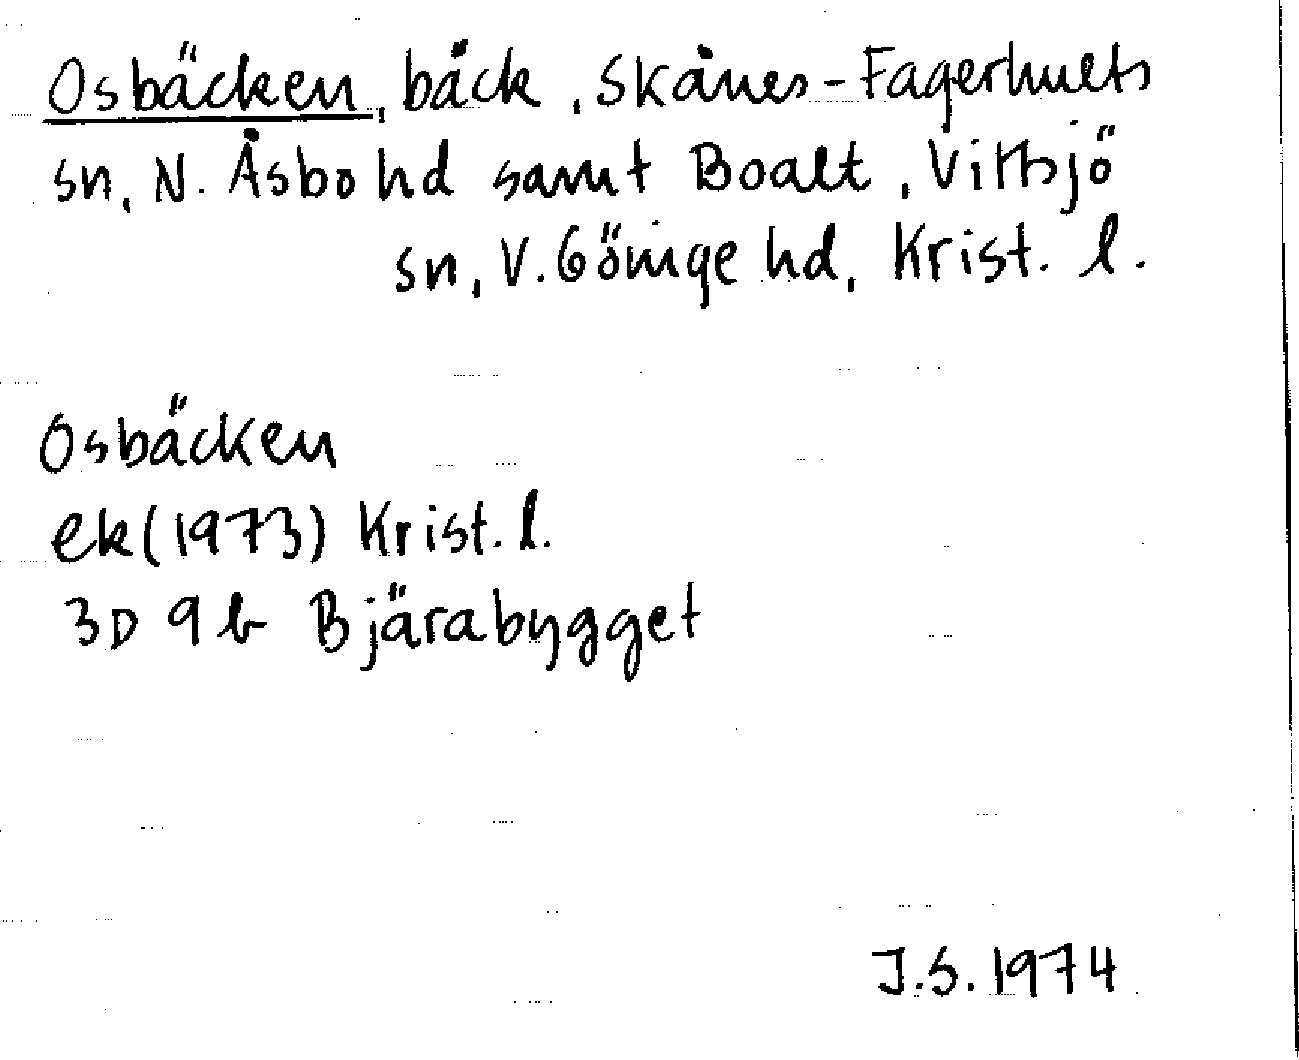 Osbäcken, bäck, Skånes-Fagerhults
sn, N. Åsbo hd samt Boalt, Vittsjö
sn, V. Göinge hd, Krist. l.
Osbäcken
ek (1973) Krist. l.
3D 9b Bjärabygget
J.S. 1974